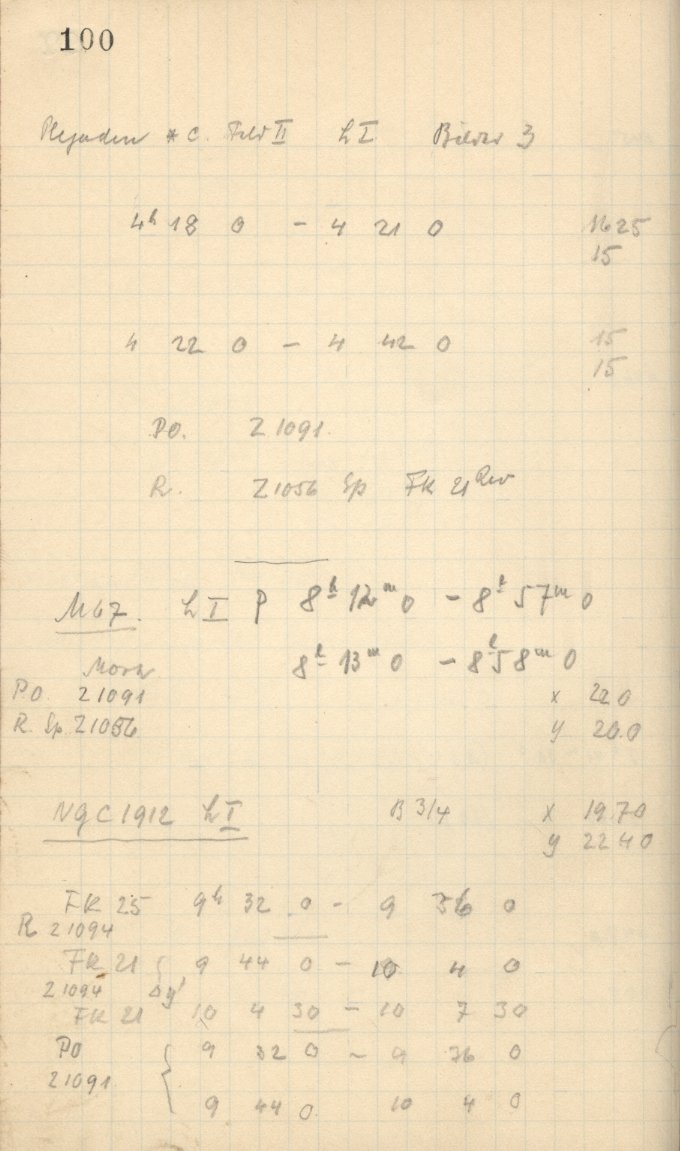 100
Plejaden * c. Feld II h I Bilder 3
4h 18 0 - 4 21 0 1625
15
4 22 0 - 4 42 0 15
15
Po. Z 1091.
R. Z1056 Sp FK 21
M67. h I P 8h 12m 0 - 8h 57m 0
8h 13m 0 - 8h 58m 0
P.O. Z1091 x 22.0
R. Sp. Z1056 y 20.0
NGC1912 h I B 3/4 x 19.70
y 22 40
FK 25 9h 32 0 - 9 36 0
R Z1094
FK 21 { 9 44 0 - 10 4 0
Z1094 Δy'
FK 21 10 4 30 - 10 7 30
Po { 9 32 0 - 9 36 0
Z1091
9 44 0. 10 4 0